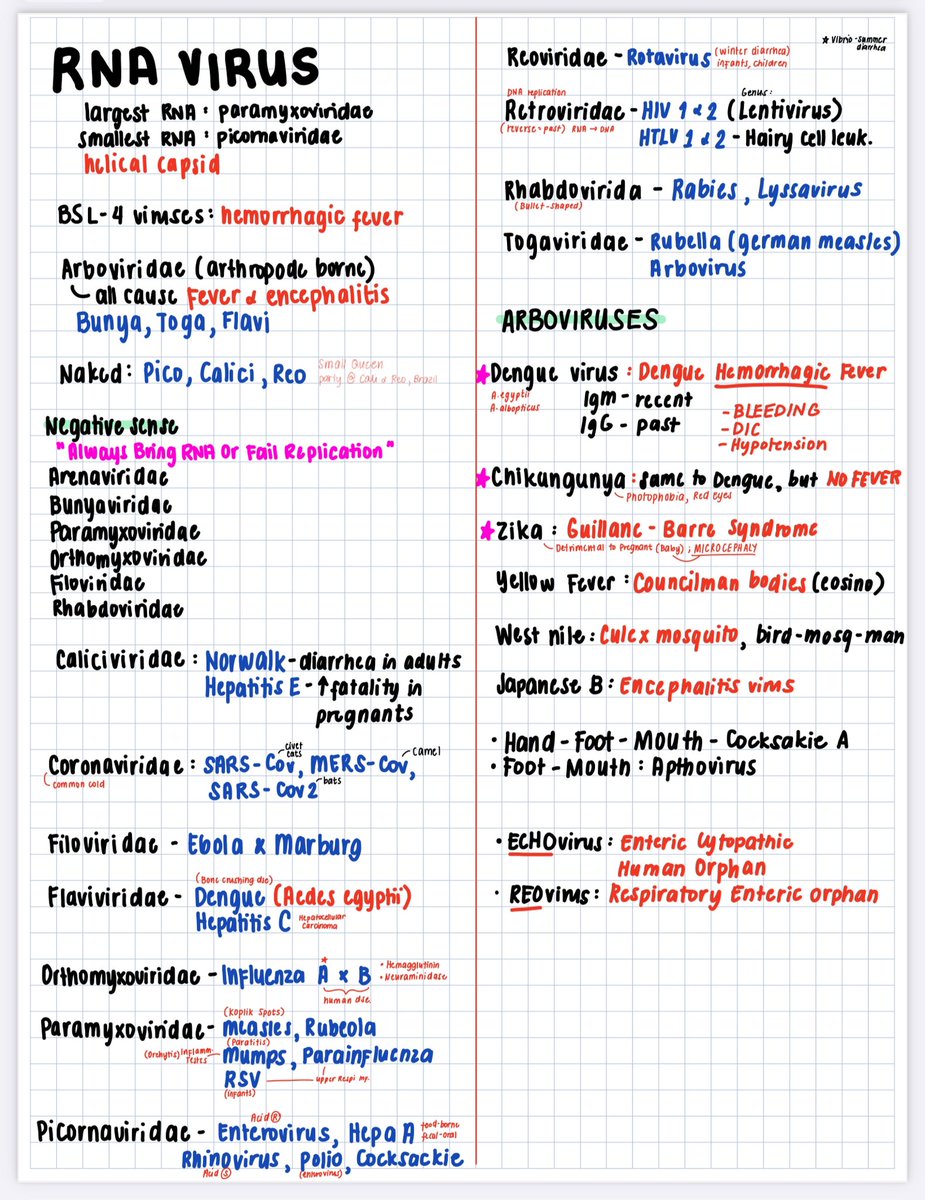 RNA VIRUS
largest RNA: paramyxoviridae
smallest RNA: picornaviridae
helical capsid
BSL-4 viruses: hemorrhagic fever
Arboviridae (arthropode borne)
all cause Fever & encephalitis
Bunya, Toga, Flavi
Naked: Pico, Calici, Reo
Small Queen
party @ Cali & Reo, Brazil
Negative sense
"Always Bring RNA Or Fail Replication"
Arenaviridae
Bunyaviridae
Paramyxoviridae
Orthomyxoviridae
Filoviridae
Rhabdoviridae
Caliciviridae: Norwalk - diarrhea in adults
Hepatitis E - ↑ fatality in
pregnants
Coronaviridae: SARS-Cov, MERS-Cov,
civet
cats
camel
common cold
SARS-Cov2
bats
Filoviridae - Ebola & Marburg
(Bone crushing dse)
Flaviviridae - Dengue (Aedes egyptii)
Hepatitis C
Hepatocellular
Carcinoma
Orthomyxoviridae - Influenza A & B
• Hemagglutinin
• Neuraminidase
human dse.
(Koplik Spots)
Paramyxoviridae - measles, Rubeola
(Parotitis)
(Orchytis) Inflamm. Testes
Mumps, Parainfluenza
RSV
upper Respi
(infants)
Acid Ⓡ
Picornaviridae - Enterovirus, Hepa A
food-borne
fecal-oral
Rhinovirus, Polio, Cocksackie
Acid Ⓢ
(enterovirus)
★ Vibrio - summer
diarrhea
Reoviridae - Rotavirus (winter diarrhea)
infants, children
DNA replication
Genus:
Retroviridae - HIV 1 & 2 (Lentivirus)
(reverse = past) RNA → DNA
HTLV 1 & 2 - Hairy cell leuk.
Rhabdovirida - Rabies, Lyssavirus
(Bullet-shaped)
Togaviridae - Rubella (german measles)
Arbovirus
ARBOVIRUSES
★ Dengue virus: Dengue Hemorrhagic Fever
A. egyptii
A. albopticus
IgM - recent
IgG - past
- BLEEDING
- DIC
- Hypotension
★ Chikungunya: same to Dengue, but NO FEVER
Photophobia, Red eyes
★ Zika: Guillane - Barre Syndrome
Detrimental to Pregnant (Baby); MICROCEPHALY
Yellow Fever: Councilman bodies (eosino)
West nile: Culex mosquito, bird-mosq-man
Japanese B: Encephalitis virus
• Hand - Foot - Mouth - Cocksakie A
• Foot - Mouth: Apthovirus
• ECHOvirus: Enteric Cytopathic
Human Orphan
• REOvirus: Respiratory Enteric orphan